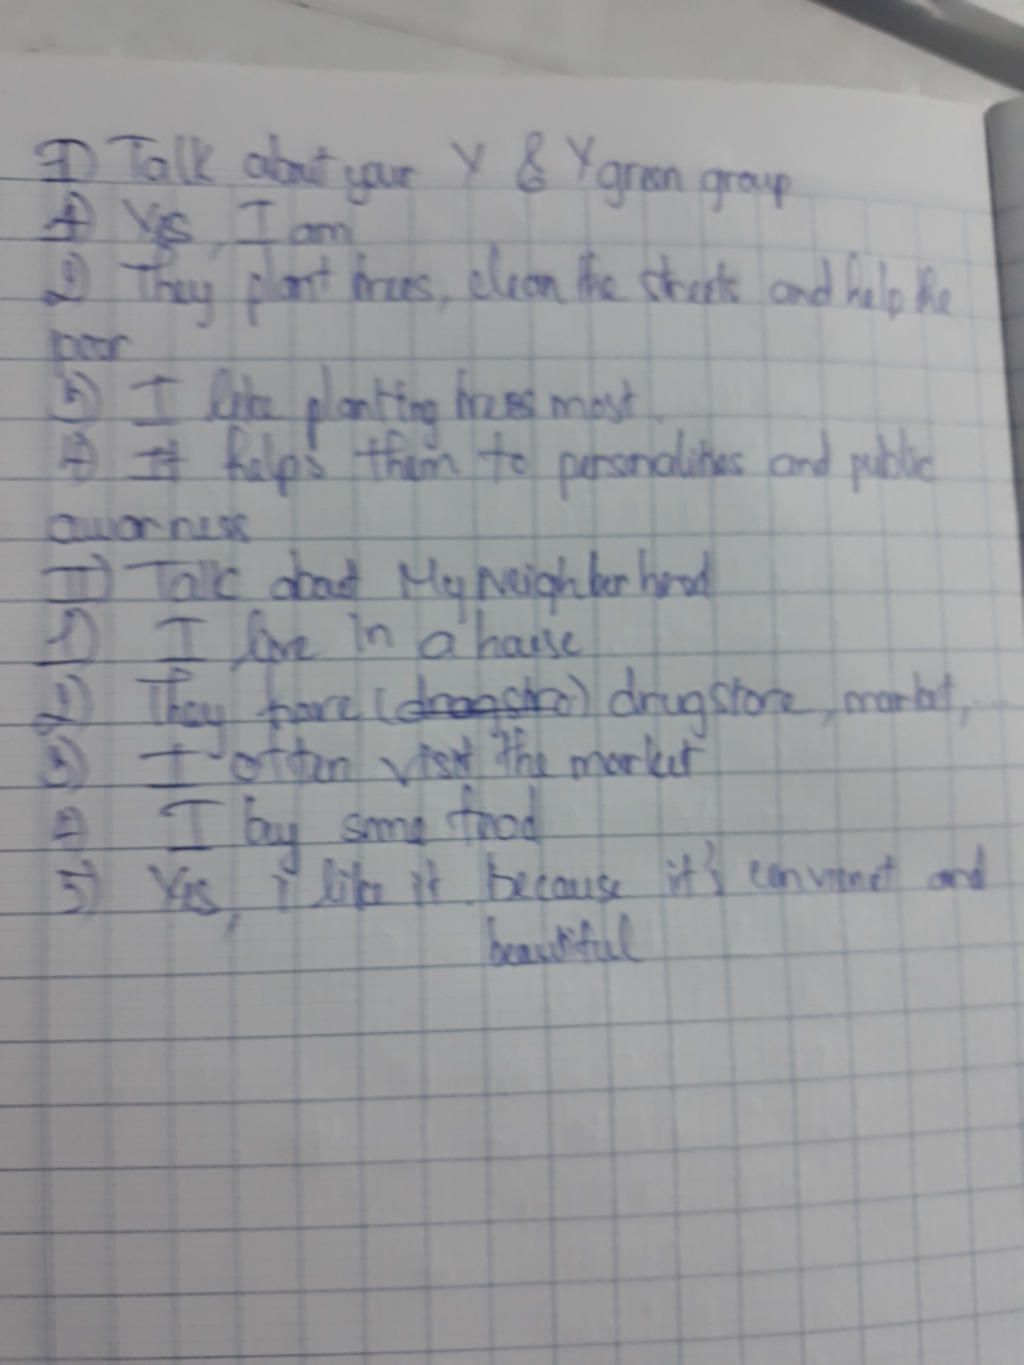 I) Talk about your Y & Y green group
1) Yes, I am
2) They plant trees, clean the streets and help the
poor
3) I like planting trees most.
4) It helps them to personalities and public
awarness
II) Talk about My Neighborhood
1) I live in a house
2) They have (drogstro) drugstore, market, ...
3) I often visit the market
4) I buy some food
5) Yes, i like it. because it's convenet and
beautiful